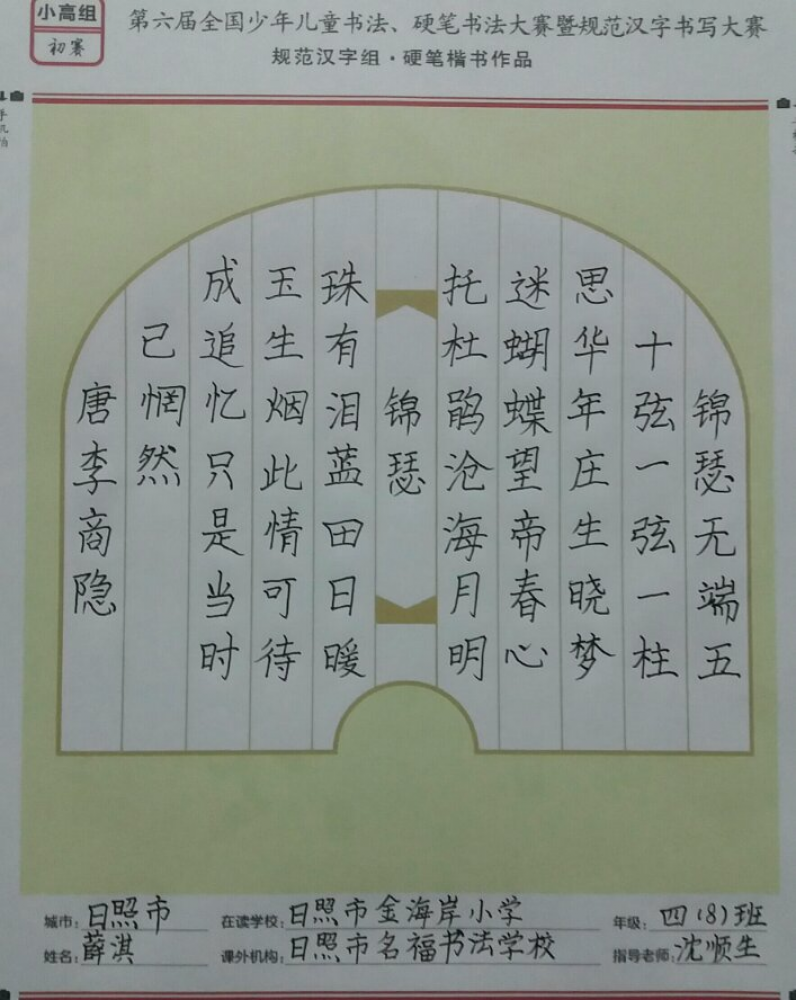 小高组
初赛
第六届全国少年儿童书法、硬笔书法大赛暨规范汉字书写大赛
规范汉字组·硬笔楷书作品
锦瑟无端五
十弦一弦一柱
思华年庄生晓梦
迷蝴蝶望帝春心
托杜鹃沧海月明
锦瑟
珠有泪蓝田日暖
玉生烟此情可待
成追忆只是当时
已惘然
唐李商隐
城市：日照市 在读学校：日照市金海岸小学 年级：四（8）班
姓名：薛淇 课外机构：日照市名福书法学校 指导老师：沈顺生